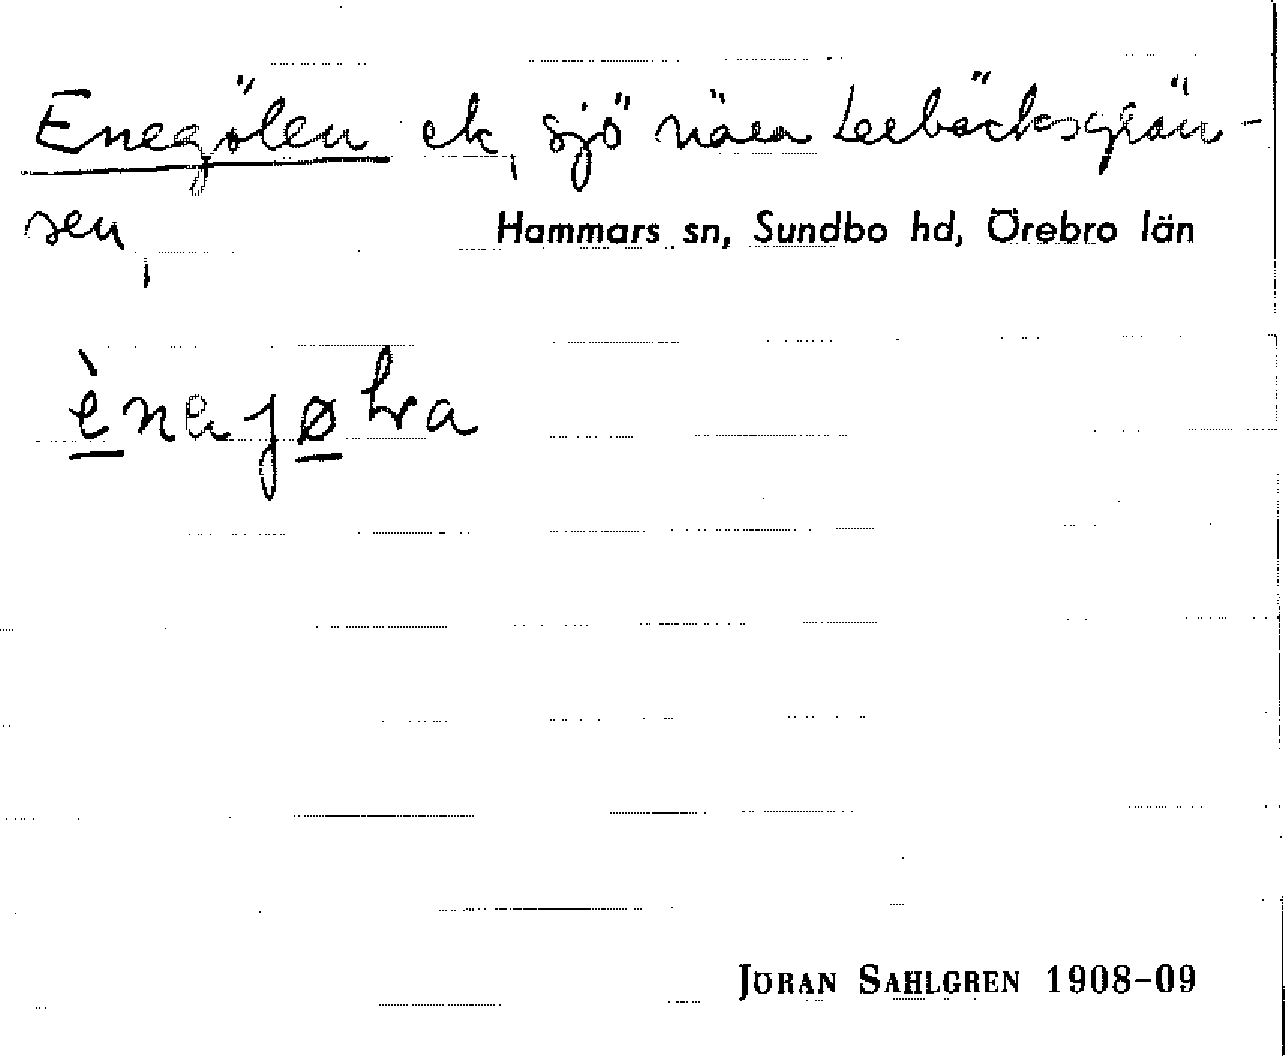 Enegölen ek, sjö nära Lerbäcksgrän-
sen,
Hammars sn, Sundbo hd, Örebro län
JÖRAN SAHLGREN 1908-09